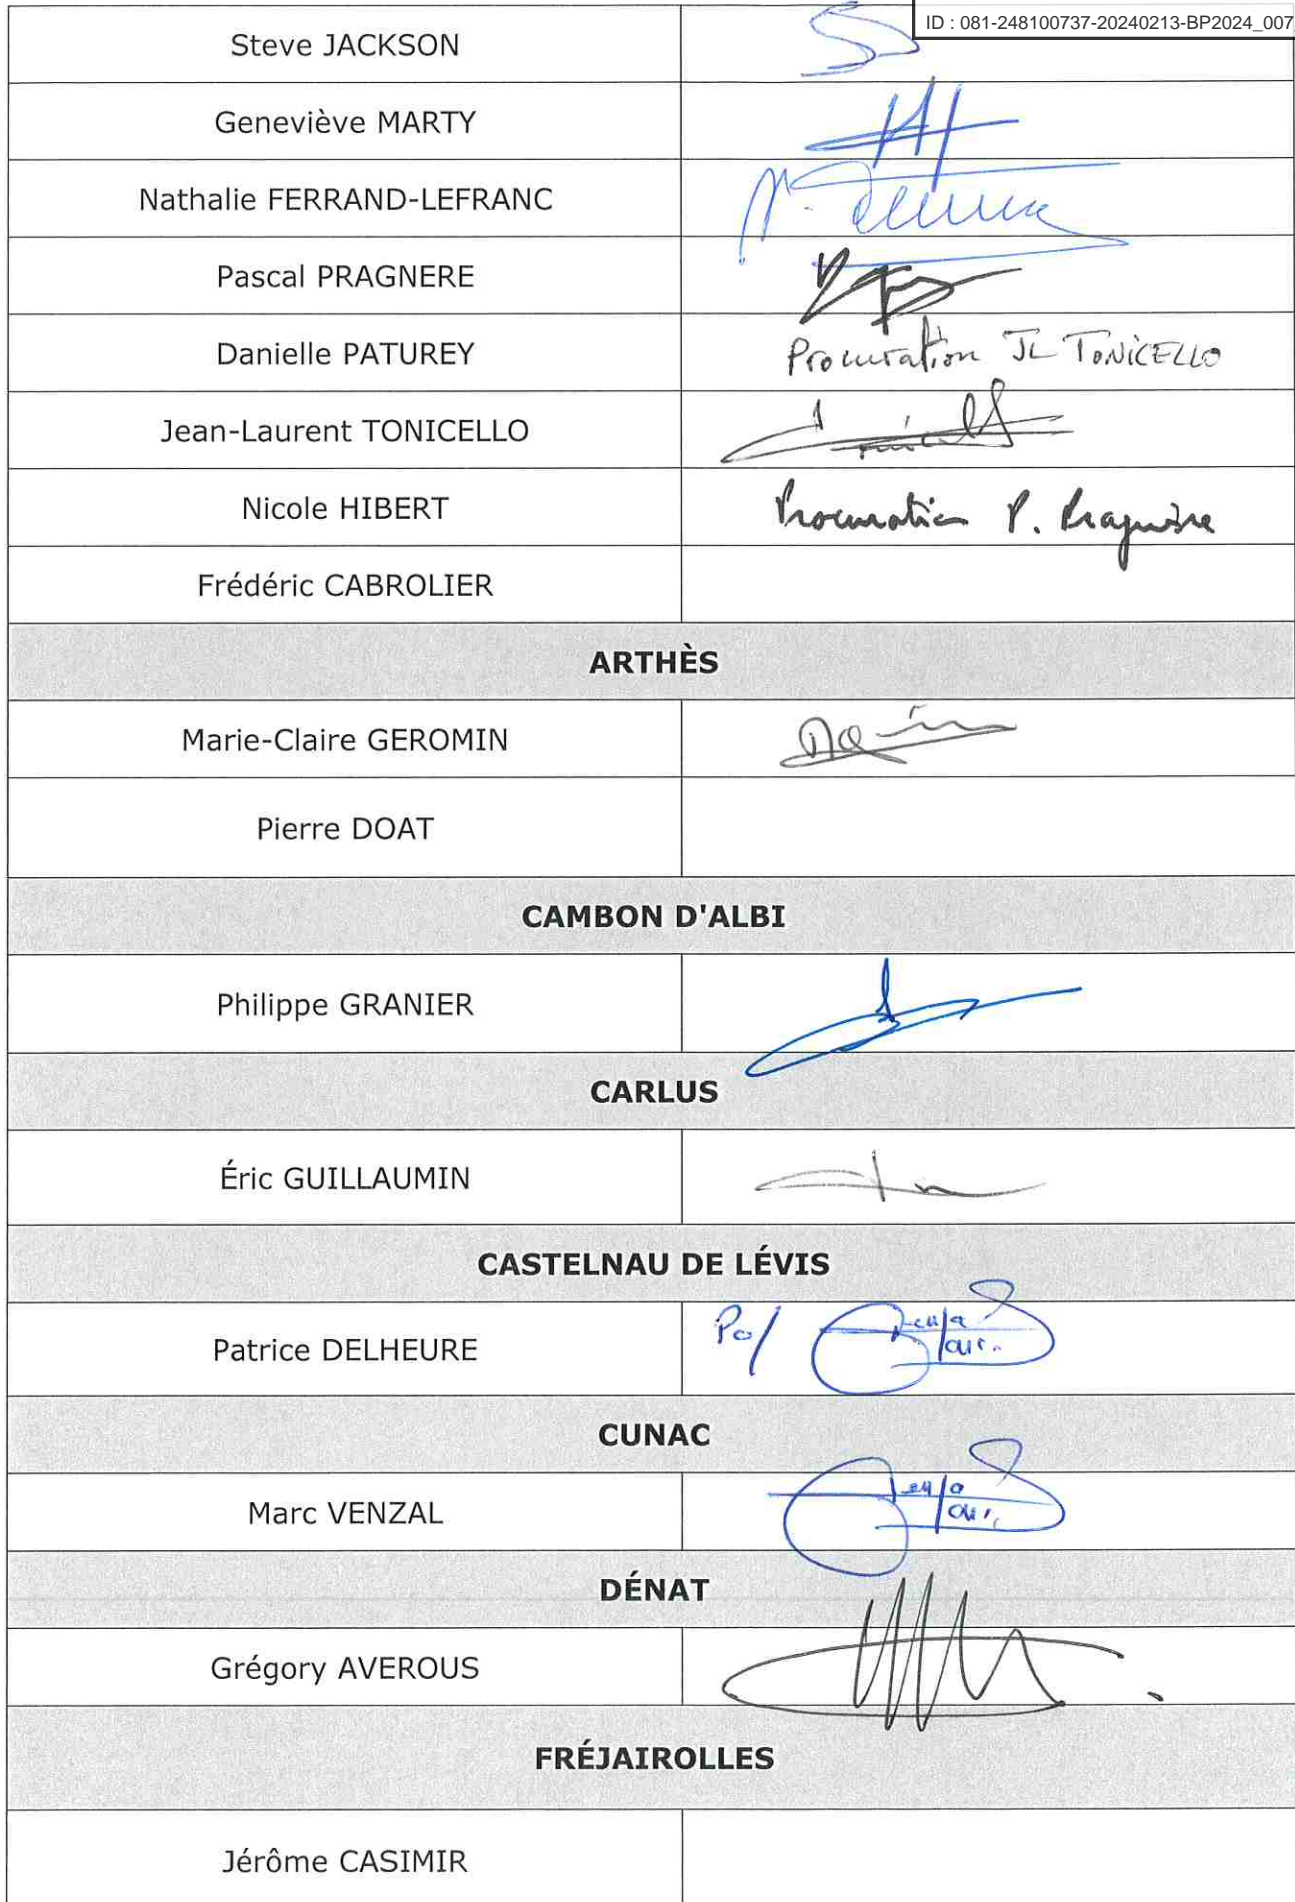 ID : 081-248100737-20240213-BP2024_007
Steve JACKSON
Geneviève MARTY
Nathalie FERRAND-LEFRANC
Pascal PRAGNERE
Danielle PATUREY
Procuration JL TONICELLO
Jean-Laurent TONICELLO
Nicole HIBERT
Procuration P. Pragnère
Frédéric CABROLIER
ARTHÈS
Marie-Claire GEROMIN
Pierre DOAT
CAMBON D'ALBI
Philippe GRANIER
CARLUS
Éric GUILLAUMIN
CASTELNAU DE LÉVIS
Patrice DELHEURE
Po/
CUNAC
Marc VENZAL
DÉNAT
Grégory AVEROUS
FRÉJAIROLLES
Jérôme CASIMIR